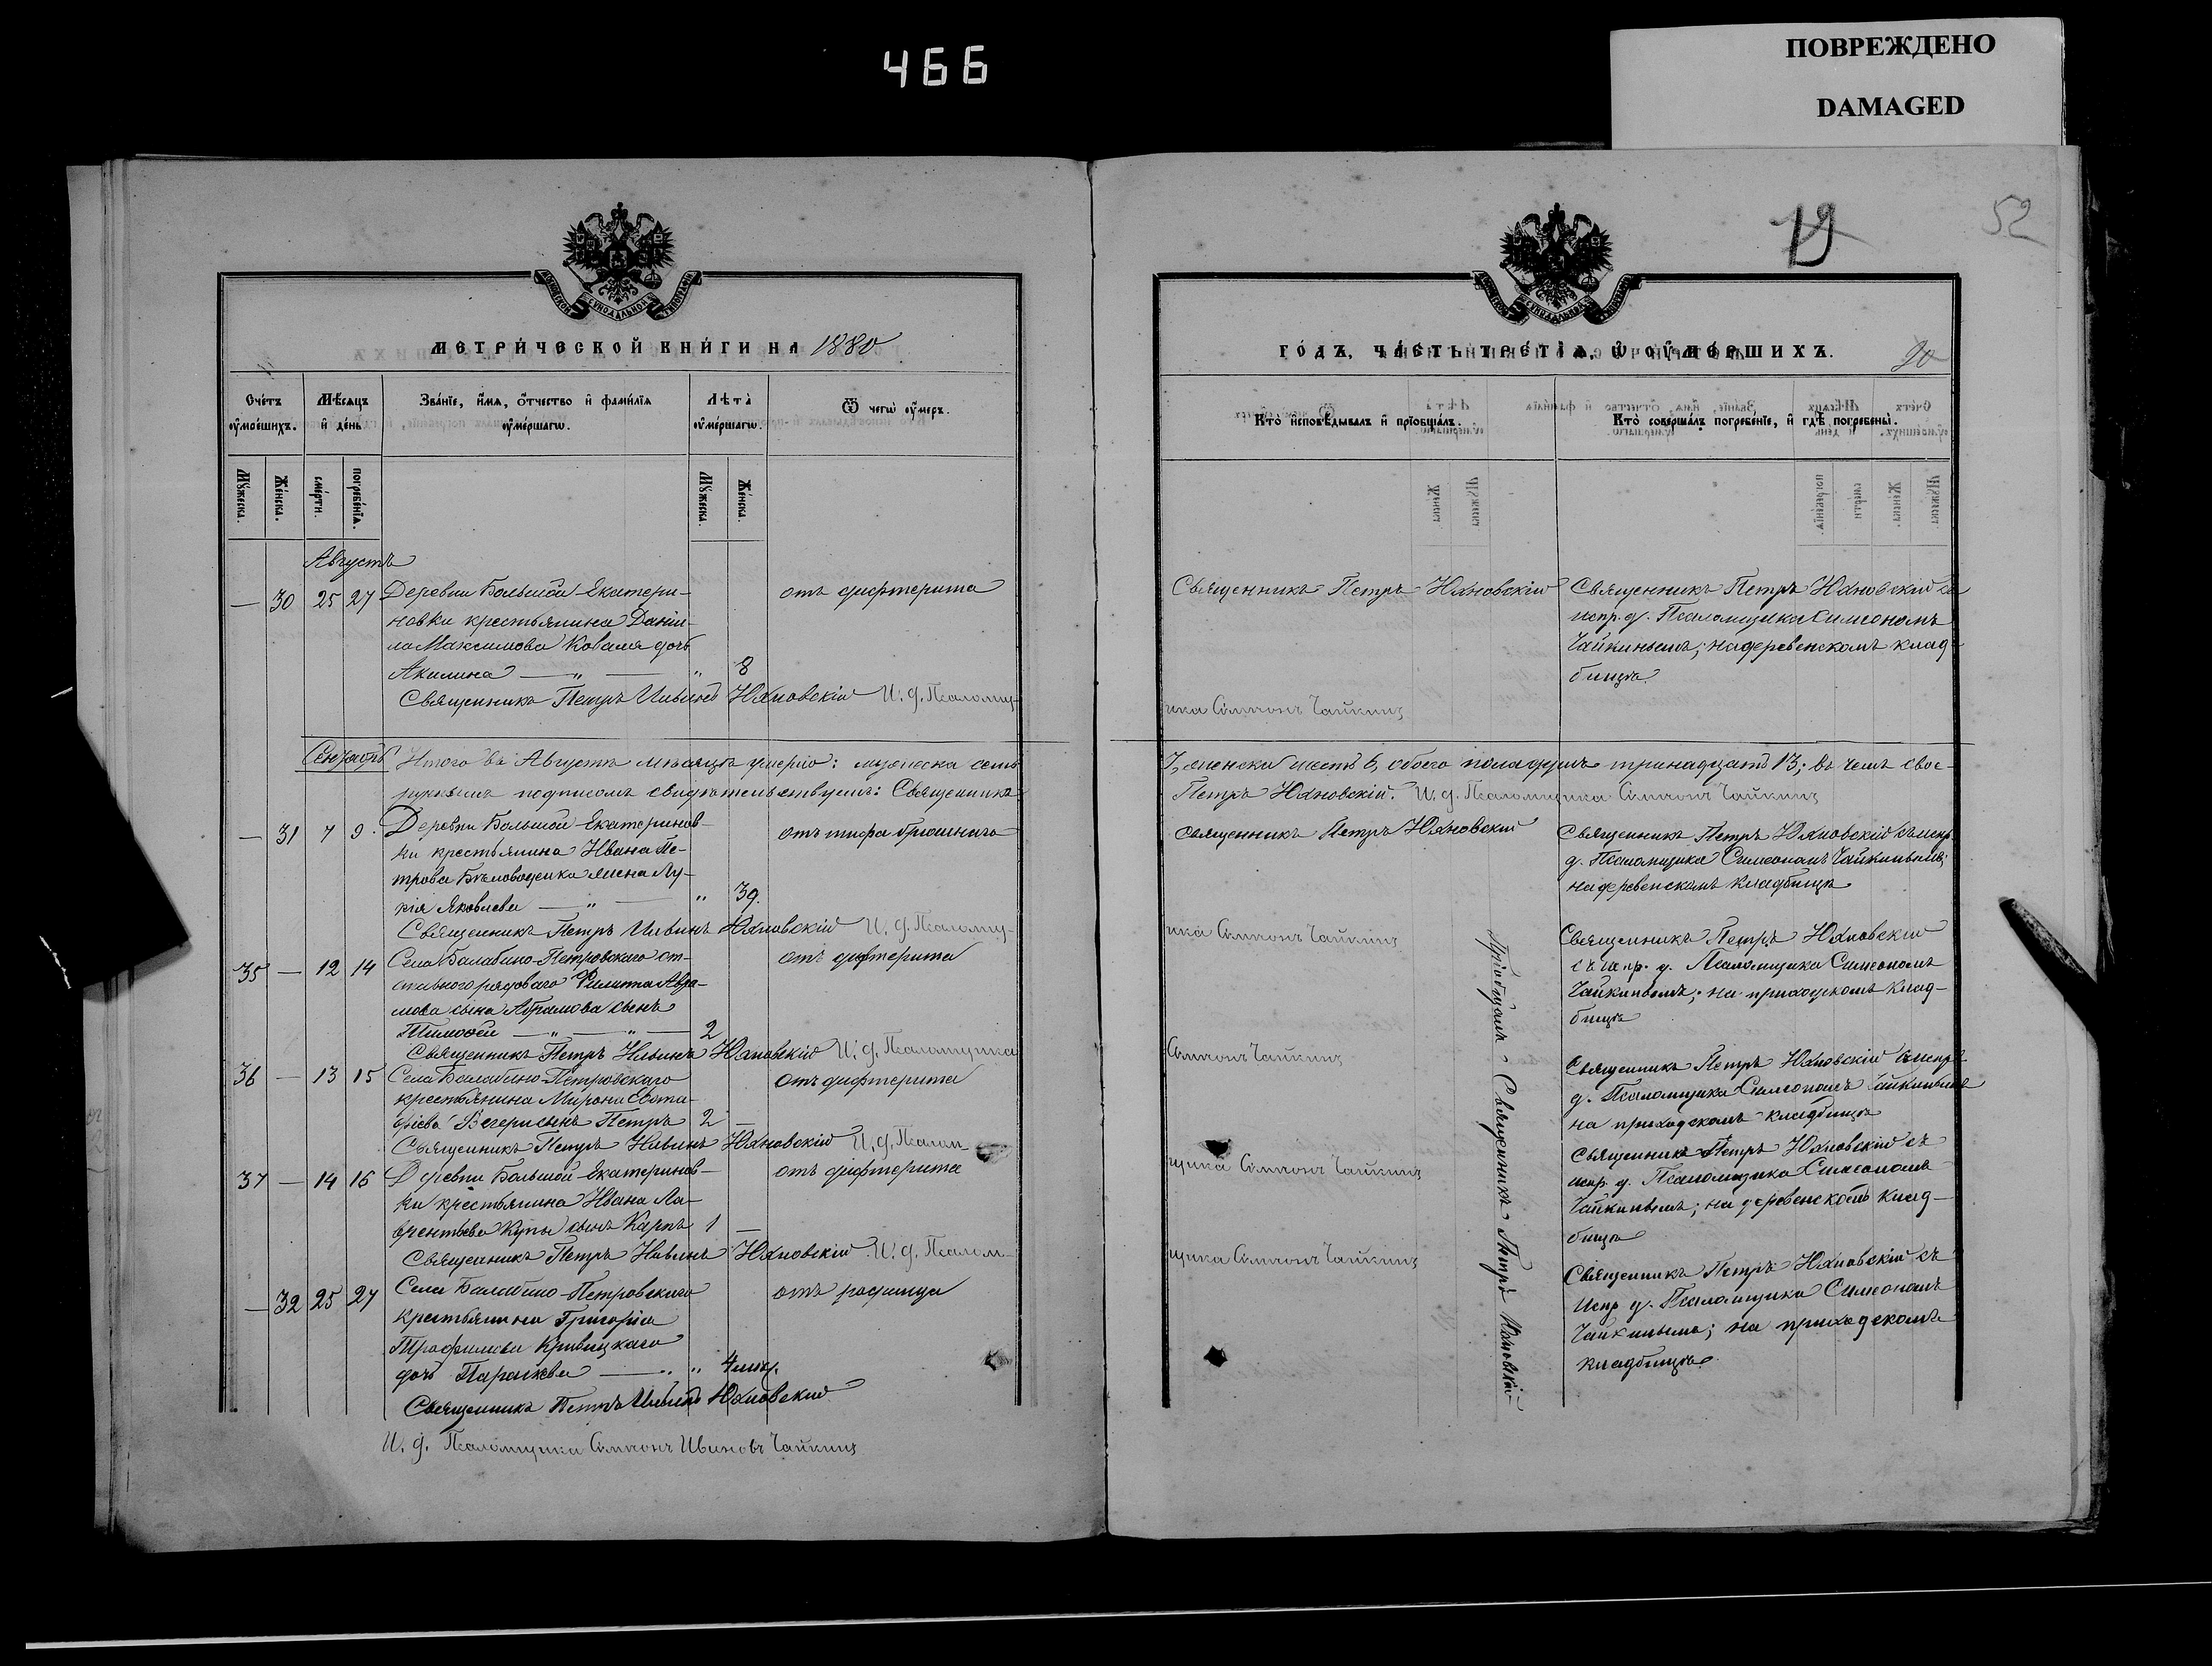 466
ПОВРЕЖДЕНО
DAMAGED
19
52
МЕТРИ́ЧЕСКОЙ КНИ́ГИ НА 1880
Сче́тъ оу҆ме́ршихъ.
Мѣ́сяцъ и҆ де́нь
Зва́нїе, и҆́мя, ѻ҆́тчество и҆ фами́лїя оу҆ме́ршагѡ.
Лѣта̀ оу҆ме́ршагѡ.
Ѿ чегѡ̀ оу҆́меръ.
Мꙋ́жеска.
Же́нска.
сме́рти.
погребе́нїя.
Мꙋ́жеска.
Же́нска.
Августъ
— 30 25 27 Деревни Большой-Екатери- отъ дифтерита
новки крестьянина Даніи-
ла Максимова Коваля дочь
Акилина — " — " 8
Священникъ Петръ Ивановъ Юхновскій И. д. Псаломщ-
Сентябрь Итого въ Августѣ мѣсяцѣ умерло: мужеска семь
рукнымъ подписомъ свидѣтельствуемъ: Священникъ
— 31 7 9. Деревни Большой-Екатеринов- отъ тифа брюшнаго
ки крестьянина Ивана Пе-
трова Бѣловоденка жена Лу-
кія Яковлева — " — " 39.
Священникъ Петръ Ивановъ Юхновскій И. д. Псаломщ-
35 — 12 14 Села Балабино-Петровскаго от- отъ дифтерита
ставного рядоваго Филиппа Авра-
мова сына Абрамова сынъ
Тимоѳей — " — " — 2
Священникъ Петръ Ивановъ Юхновскій И. д. Псаломщика
36 — 13 15 Села Балабино-Петровскаго отъ дифтерита
крестьянина Мирона
сынъ Петръ 2 —
Священникъ Петръ Ивановъ Юхновскій И. д. Псалом-
37 — 14 16 Деревни Большой-Екатеринов- отъ дифтерита
ки крестьянина Ивана Ла-
врентьева Купы сынъ Карпъ 1 —
Священникъ Петръ Ивановъ Юхновскій И. д. Псалом-
— 32 25 27 Села Балабино-Петровскаго отъ родимца
крестьянина Григорія
Трофимова Кривицкаго
дочь Параскева — " " 4 мѣс.
Священникъ Петръ Ивановъ Юхновскій
И. д. Псаломщика Симеонъ Ивановъ Чайкинъ
ГО́ДЪ, ЧА́СТЬ ТРЕ́ТІѦ, Ѡ҆ ОУ҆МЕ́РШИХЪ.
20
Кто̀ и҆сповѣ́дывалъ и҆ прїѻбща́лъ.
Кто̀ соверша́лъ погребе́нїе, и҆ гдѣ̀ погребены̀.
Священникъ Петръ Юхновскій
Священникъ Петръ Юхновскій съ
испр. д. Псаломщика Симеономъ
Чайкинымъ; на деревенскомъ клад-
бищѣ.
ика Симеонъ Чайкинъ
7, женска шесть 6, обоего пола душъ тринадцать 13; въ чемъ свое-
Петръ Юхновскій. И. д. Псаломщика Симеонъ Чайкинъ
Священникъ Петръ Юхновскій
Священникъ Петръ Юхновскій съ испр.
д. Псаломщика Симеономъ Чайкинымъ;
на деревенскомъ кладбищѣ
ика Симеонъ Чайкинъ
Священникъ Петръ Юхновскій
съ испр. д. Псаломщика Симеономъ
Чайкинымъ; на приходскомъ клад-
бищѣ
Симеонъ Чайкинъ
Священникъ Петръ Юхновскій съ испр.
д. Псаломщика Симеономъ Чайкинымъ
на приходскомъ кладбищѣ
щика Симеонъ Чайкинъ
Священникъ Петръ Юхновскій съ
испр. д. Псаломщика Симеономъ
Чайкинымъ; на деревенскомъ клад-
бищѣ
щика Симеонъ Чайкинъ
Священникъ Петръ Юхновскій съ
испр. д. Псаломщика Симеономъ
Чайкинымъ; на приходскомъ
кладбищѣ.
Пріобщалъ Священникъ Петръ Юхновскій